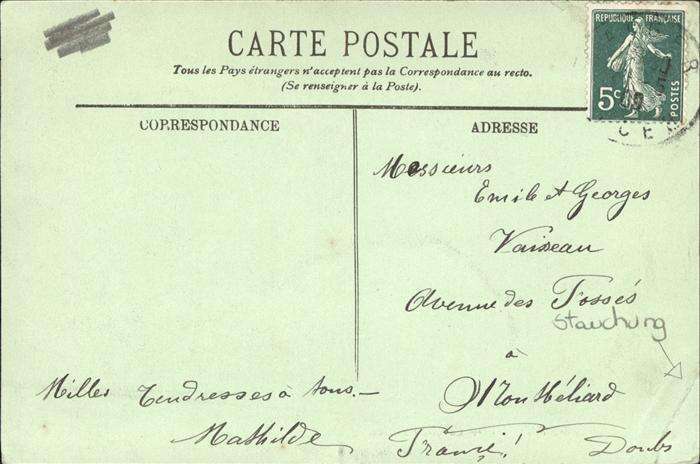 CARTE POSTALE
Tous les Pays étrangers n'acceptent pas la Correspondance au recto.
(Se renseigner à la Poste).
REPUBLIQUE FRANÇAISE
5c
POSTES
CORRESPONDANCE
ADRESSE
Messieurs
Emile et Georges
Avenue des Fossés
Stauchung
à
Montbéliard
France!
Doubs
Milles tendresses à tous.—
Mathilde